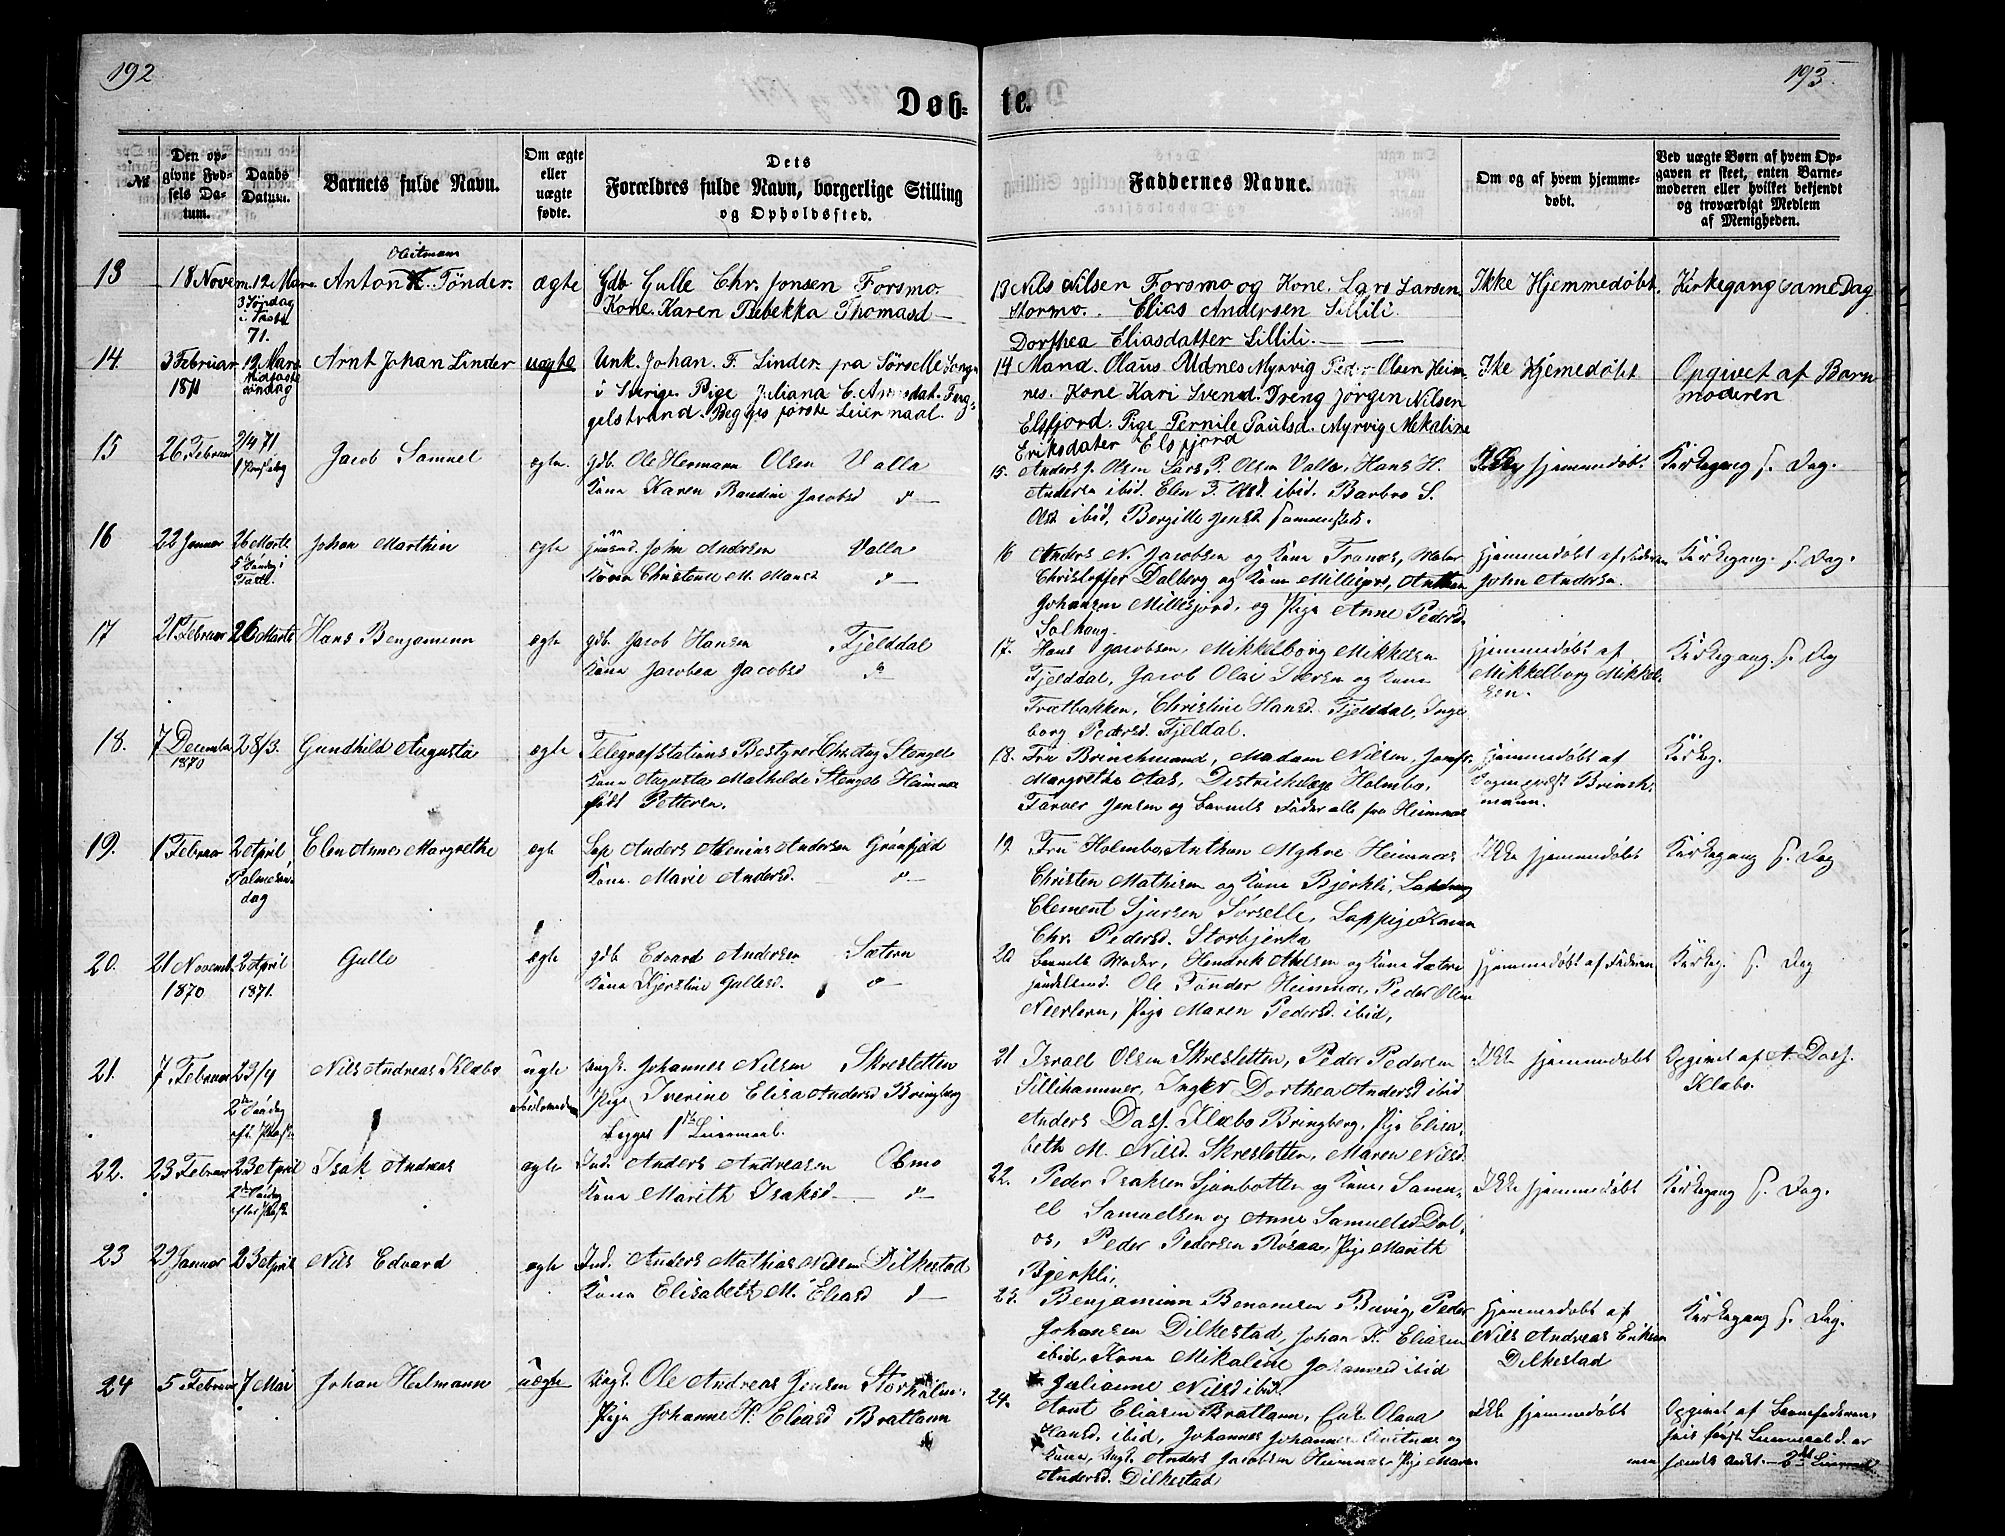 192
193.
Døb-
te.
№
Den op-
givne Fød-
sels Da-
tum.
Daabs
Datum.
Barnets fulde Navn.
Om ægte
eller
uægte
fødte.
Dets
Forældres fulde Navn, borgerlige Stilling
og Opholdssted.
Faddernes Navne.
Om og af hvem hjemme-
døbt.
Ved uægte Børn af hvem Op-
gaven er skeet, enten Barne-
moderen eller hvilket bekjendt
og troværdigt Medlem
af Menigheden.
13
18 Novem.
12 Mars.
3 Søndag
i Faste
71.
Anton Tönder.
ægte
Gdb. Gulle Chr. Jonsen Forsmo.
Kone. Karen Rebekka Thomasd —
13 Nils Nilsen Forsmo og Kone. Lars Larsen
Stormo. Elias Andersen Lillili.
Dorthea Eliasdatter Lillili.
Ikke Hjemmedøbt.
Kirkegang same Dag
14
3 Februar
1871
12 Mars
Midfaste
søndag
Arnt Johan Linder
uægte
Unk. Johan. F. Linder. fra Sörselle
i Sverige. Pige Juliana E. Arnsdat.
gelstrand. Begges første Leiermaal.
14 Mand. Olaus Udnes Myrvig Peder Olsen Heim-
nes. Kone Kari Svend. Dreng Jörgen Nilsen
Elsfjord. Pige Pernile Paulsd. Myrvig Mekaline
Eriksdater Elsfjord
Ike Hjemedøbt
Opgivet af Barn
moderen
15
26 Februar
2/4 71
Jacob Samuel
ægte.
gdb. Ole Hermann Olsen Valla
Kone Karen Bendine Jacobsd
15. Anders J. Olsen Lars P. Olsen Valla, Hans H.
Andersen ibid. Elen F. Olsd. ibid. Barbro S.
Olsd ibid, Bergitte Jensd sammesteds.
hjemmedøbt
Kirkegang s. Dag.
16
22 Januar
26 Marts
5 Søndag i
Fast.
Johan Marthin
ægte
John Andersen Valla
Kone Christence M. Mansd
16 Anders N. Jacobsen og Kone Tranæs,
Christoffer Dalberg og Kone Millisjord,
Johansen Millesjord, og Pige Anne Pedersd
Solhaug.
Hjemmedøbt af Faderen
John Andersen.
Kirkegang. s. Dag.
17
21 Februar
26 Marts
Hans Benjaminn
ægte
gdb. Jacob Hansen Fjelddal
Kone Jacobea Jacobsd
17. Hans Jacobsen, Mikkelborg Mikkelsen
Fjelddal, Jacob Olai Iversen og Kone
Trætbakken, Christine Hansd. Fjelddal, Inge
borg Pedersd. Fjeldal.
Hjemmedøbt af
Mikkelborg Mikkel-
sen.
Kirkegang. s. Dag
18.
7 Decembr
1870
28/3.
Gundhild Augusta
ægte
Telegrafstations Bestyrer Chr. Aug Stengel
Kone Augusta Mathilde Stengel Hemnæs
født Pettersen.
18. Fru Brinchmand, Madam Nilsen, Jomfr.
Margrethe Aas, Districktslæge Holmbo,
Farver Jensen og Barnets Fader alle fra Hemnæs
Hjemmedøbt af
Sognepræst Brinch-
mann.
Kirkeg.
19.
1 Februar
2 April
Palmesøn-
dag
Elen Anne Margrethe
ægte
Lap Anders Andersen Grønfjeld
Kone. Marie Andersd.
19 Fru Holmbo, Anthon Myhre Hemnæs
Christen Mathisen og Kone Bjerkli,
Clement Sjursen Sørselle, Lappige
Chr. Pedersd. Storbjerka
Ikke hjemmedøbt
Kirkegang s. Dag
20.
21 Novemb.
1870
2 April
1871.
Gulle
ægte
gdb Edvard Andersen Sætern
Kone Kjerstine Gullesd.
20 Barnets Moder, Hendrik og Kone
Ole Tønder Hemnæs, Peder Olsen
Neerlern, Pige Maren Pedersd. ibid,
Hjemmedøbt af Faderen
Kirkeg. s. Dag
21.
7 Februar
23/4
2den Søndag
eft. Paaske
Nils Andreas Klæbo
uægte
Ungk. Johannes Nilsen Skresletten
Pige Iverine Elisa Andersd Bringberg
begges 1ste Leiermaal.
21 Israel Olsen Skresletten, Peder Pedersen
Lillehammer, Inger Dorthea Andersd ibid
Anders Dass. Klæbo Bringberg, Pige Elisa-
beth M. Nilsd. Skresletten, Maren Nilsd.
Ikke hjemmedøbt
Opgivet af A. Dass.
Klæbo.
22.
23 Februar
23 April
2den Søndag
efter Paaske
Isak Andreas
ægte
Ind. Anders Andreasen Osmo
Kone Marith Isaksd.
22. Peder Isaksen Sjønbotten og Kone, Samu-
el Samuelsen og Anne Samuelsd Dal-
os, Peder Pedersen Røsaa, Pige Marith
Bjerkli,
Ikke hjemmedøbt
Kirkegang s. Dag.
23
29 Januar
23 April
Nils Edvard
ægte
Ind. Anders Mathias Nilsen Dilkestad
Kone Elisabeth M. Eliasd
23. Benjaminn Benonisen Buvig, Peder
Johansen Dilkestad, Johan K. Eliasen
ibid, Kone Mikaline Johannesd ibid
Julianne Nilsd ibid.
Hjemmedøbt af
Nils Andreas Eriksen
Dilkestad
Kirkegang s. Dag.
24
5 Februar
7 Mai
Johan Helmann
uægte
Ungk. Ole Andreas Jensen Storholm.
Pige Johanne H. Eliasd Brattann
24. Arnt Eliasen Brattann, Enke Olava
Hansd. ibid, Johannes Johannesen og
Kone, Ungk. Anders Jacobsen Hemnæs, Pige Maren
Andersd. Dilkestad
Ikke hjemmedøbt
Opgivet af Barnefaderen,